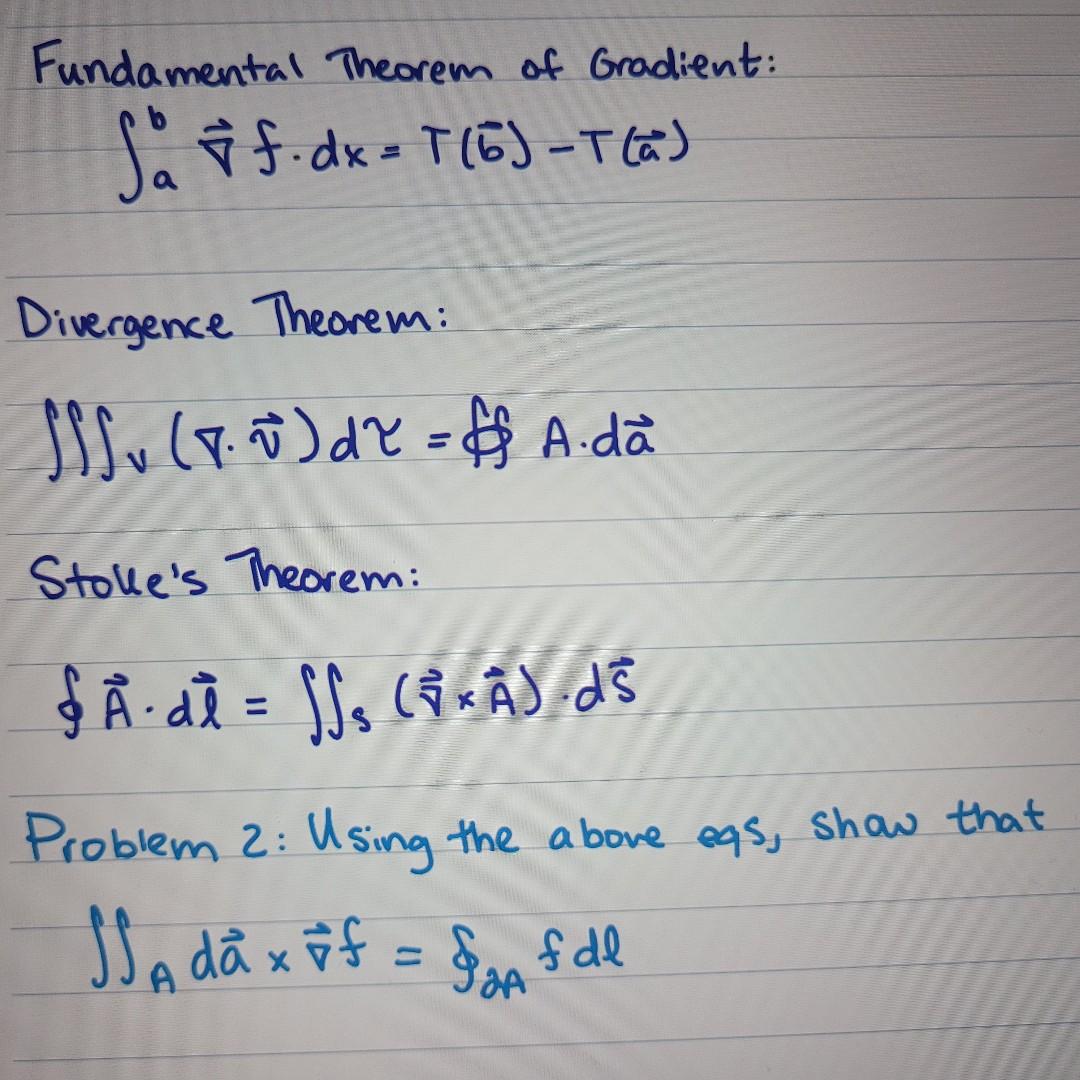 Fundamental Theorem of Gradient:
∫ₐᵇ ∇⃗ f · dx = T(b⃗) − T(a⃗)
Divergence Theorem:
∭ᵥ (∇ · v⃗) dτ = ∯ A · da⃗
Stoke's Theorem:
∮ A⃗ · dl⃗ = ∬ₛ (∇⃗ × A⃗) · ds⃗
Problem 2: Using the above eqs, show that
∬_A da⃗ × ∇⃗f = ∮_∂A f dl